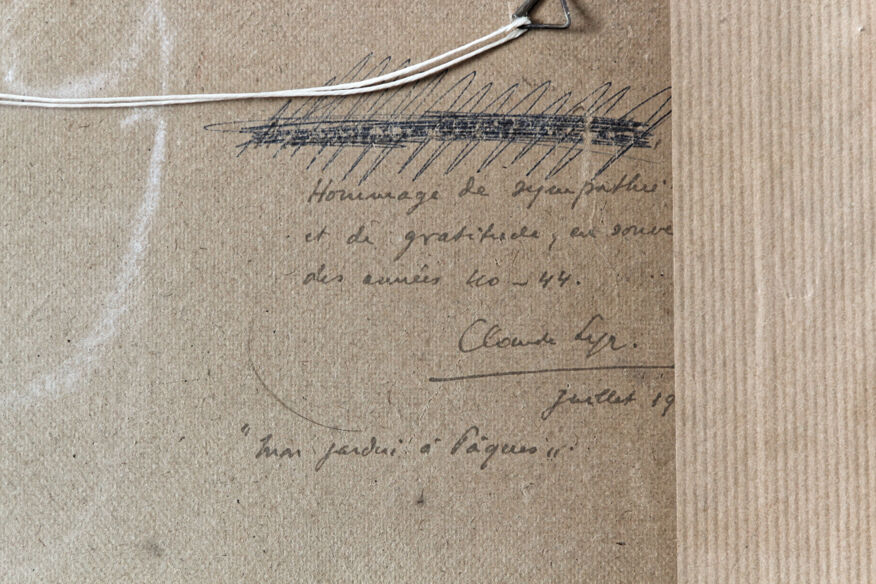 Hommage de sympathie
et de gratitude, en souve
des années 40-44.
Claude Lyr.
Juillet 19
"Mon jardin à Pâques".